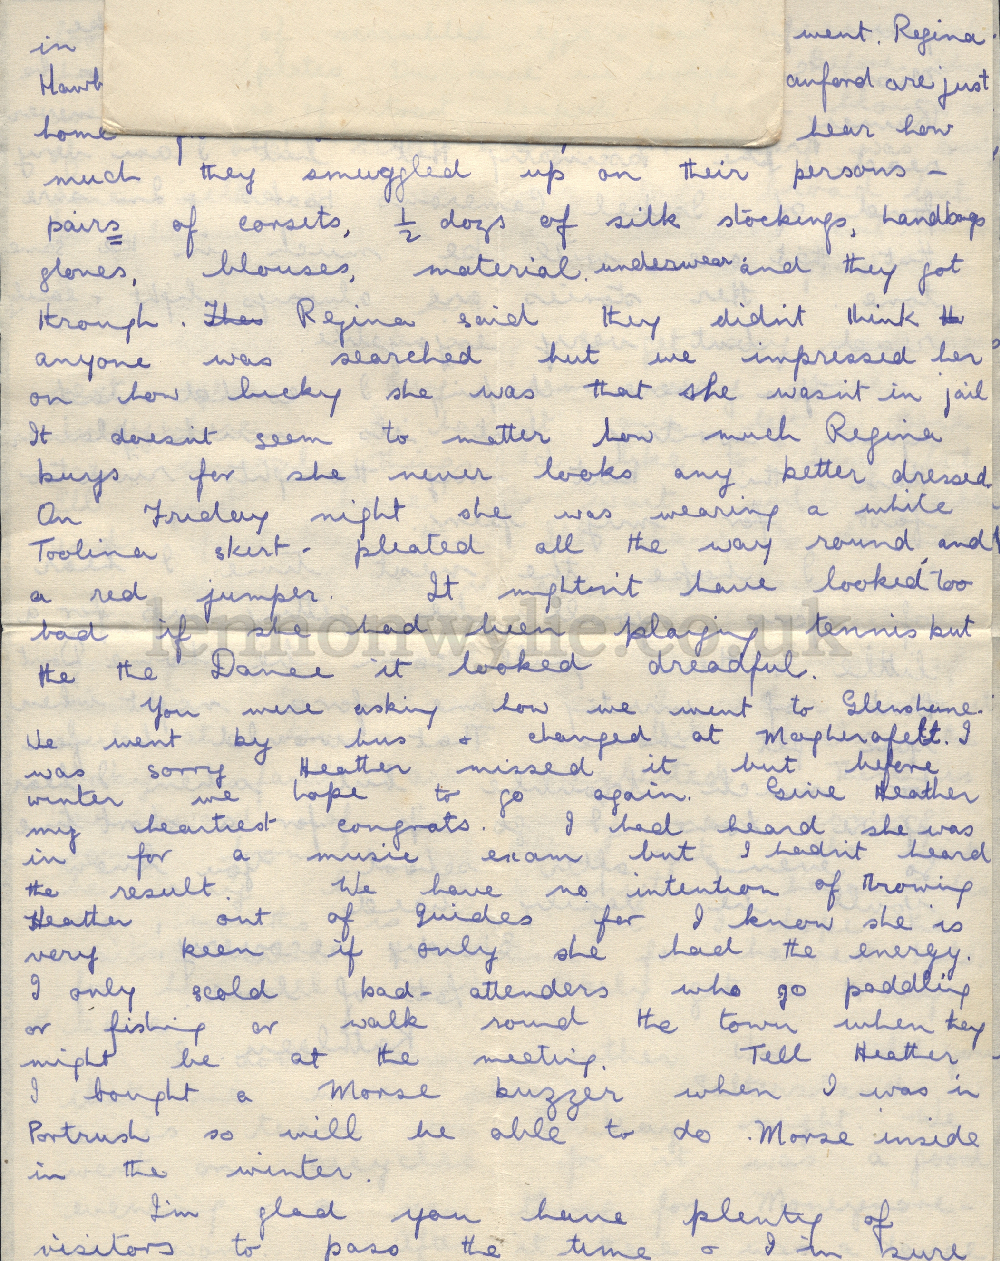 in went. Regina
Hawb anford are just
home hear how
much they smuggled up on their persons -
pairs of corsets, 1/2 dozs of silk stockings, handbags
gloves, blouses, material, underwear and they got
through. Regina said they didn't think
anyone was searched but we impressed her
on how lucky she was that she wasn't in jail
It doesnt seem to matter how much Regina
buys for she never looks any better dressed.
On Friday night she was wearing a white
Toolina skirt - pleated all the way round, and
a red jumper. It mightn't have looked too
bad if she had been playing tennis but
the the Dance it looked dreadful.
lennonwylie.co.uk
You were asking how we went to Glenshane.
We went by bus & changed at Magherafelt. I
was sorry Heather missed it but before
winter we hope to go again. Give Heather
my heartiest congrats. I had heard she was
in for a music exam but I hadn't heard
the result. We have no intention of throwing
Heather out of Guides for I know she is
very keen if only she had the energy.
I only scold bad-attenders who go paddling
or fishing or walk round the town when they
might be at the meeting. Tell Heather
I bought a Morse buzzer when I was in
Portrush so will be able to do Morse inside
in the winter.
I'm glad you have plenty of
visitors to pass the time & I'm sure